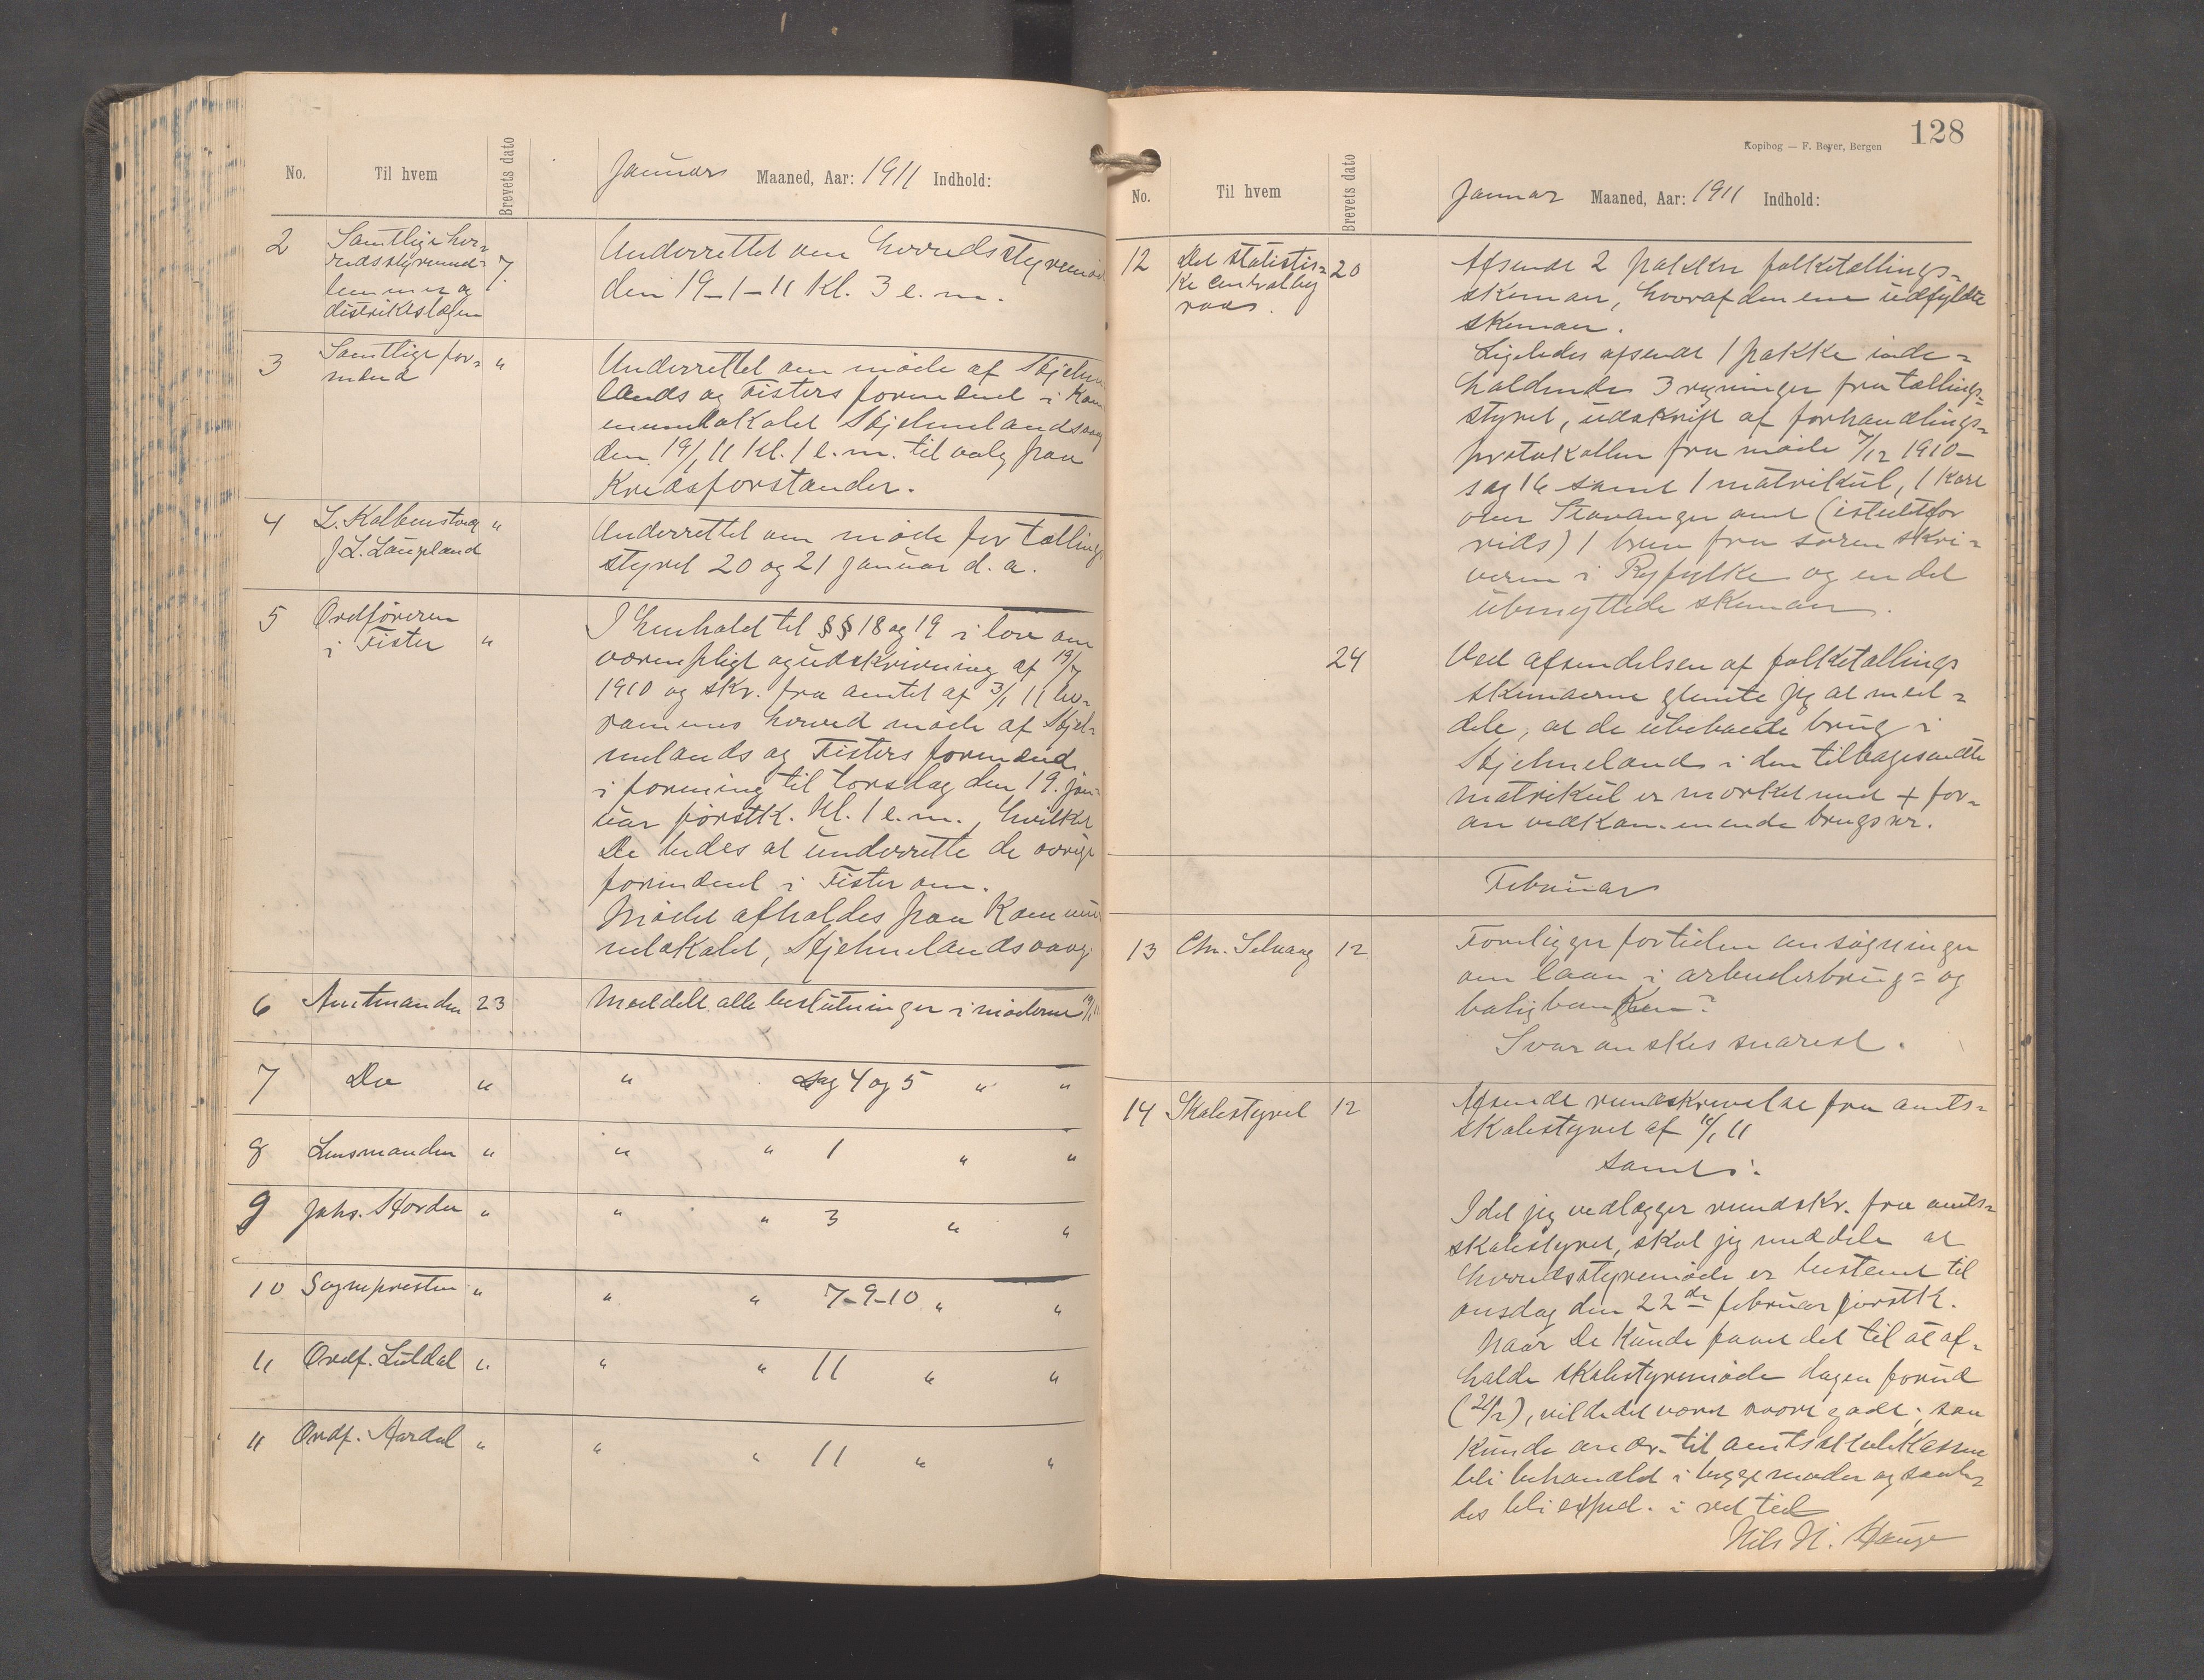 No. Til hvem Brevets dato Januar Maaned, Aar: 1911 Indhold:
2 Samtlige her-
redsstyremed-
lemmer og
distriktslægen
7.
Underrettet om herredsstyremøde
den 19-1-11 Kl. 3 e.m.
3 Samtlige for-
mænd
"
Underrettet om møde af Hjelme-
lands og Fisters formænd i Kom
munelokalet Hjelmelandsvaag
den 19/1 11 Kl. 1 e.m. til valg paa
Kredsforstander.
4 L. Kolbenstvedt "
J. L. Laugland
Underrettet om møde for tællings
styret 20 og 21 januar d.a.
5 Ordføreren
i Fister "
I henhold til §§ 18 og 19 i lov om
værnepligt og udskrivning af 19/7
1910 og skr. fra amtet af 3/1 11 be-
rammes herved møde af Hjel-
melands og Fisters formænd
i forening til torsdag den 19. jan-
uar førstk. Kl. 1 e.m., hvilket
De bedes at underrette de øvrige
formænd i Fister om.
Mødet afholdes paa Kommu
nelokalet, Hjelmelandsvaag.
6 Amtmanden 23 Meddelt alle beslutninger i møderne 19/1 11
7 Do " " sag 4 og 5 " "
8 Lensmanden " " " 1 " "
9 Johs. Hordon " " " 3 " "
10 Sognepresten " " " 7-9-10 " "
11 Ordf. Suldal " " " 11 " "
11 Ordf. Aardal " " " 11 " "
128
Kopibog — F. Beyer, Bergen
No. Til hvem Brevets dato Januar Maaned, Aar: 1911 Indhold:
12 Det statistis-
ke centralby
raa.
20
Afsendt 2 pakker folketællings-
skemaer, hvoraf den ene udfyldte
skemaer.
Ligeledes afsendt 1 pakke inde-
holdende 3 regninger fra tællings-
styret, udskrift af forhandlings-
protokollen fra møde 7/12 1910-
sag 16 samt 1 matrikul, 1 kart
over Stavanger amt
1 brev fra soren skri-
veren i Ryfylke og en del
ubenyttede skemaer.
24
Ved afsendelsen af folketællings
skemaerne glemte jeg at med-
dele, at de ubeboede brug i
Hjelmeland i den tilbagesendte
matrikul er merket med + for-
an vedkommende brugsnr.
Februar
13 Chr. Selvaag 12
Foreligger fortiden ansøgninger
om laan i arbeiderbrug- og
boligbanken?
Svar ønskes snarest.
14 Skolestyret 12
Afsendt rundskrivelse fra amts-
skolestyret af 16/1 11
samt:
Idet jeg vedlægger rundskr. fra amts-
skolestyret, skal jeg meddele at
herredsstyremøde er bestemt til
onsdag den 22de februar førstk.
Naar De kunde faaet det til at af-
holde skolestyremøde dagen forud
(21/2), vilde det været svært godt; saa
kunde an dr. til amtsskolekassen
bli behandlet i begge møder og saale-
des bli exped. i ret tid
Nils N. Hauge